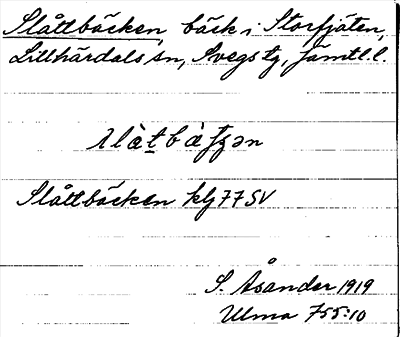 Slåttbäcken, bäck i Storfjäten,
Lillhärdals sn, Svegs tg, Jämtl. l.
Slåttbäcken klj 77 SV
S. Åsander 1919
Ulma 755:10